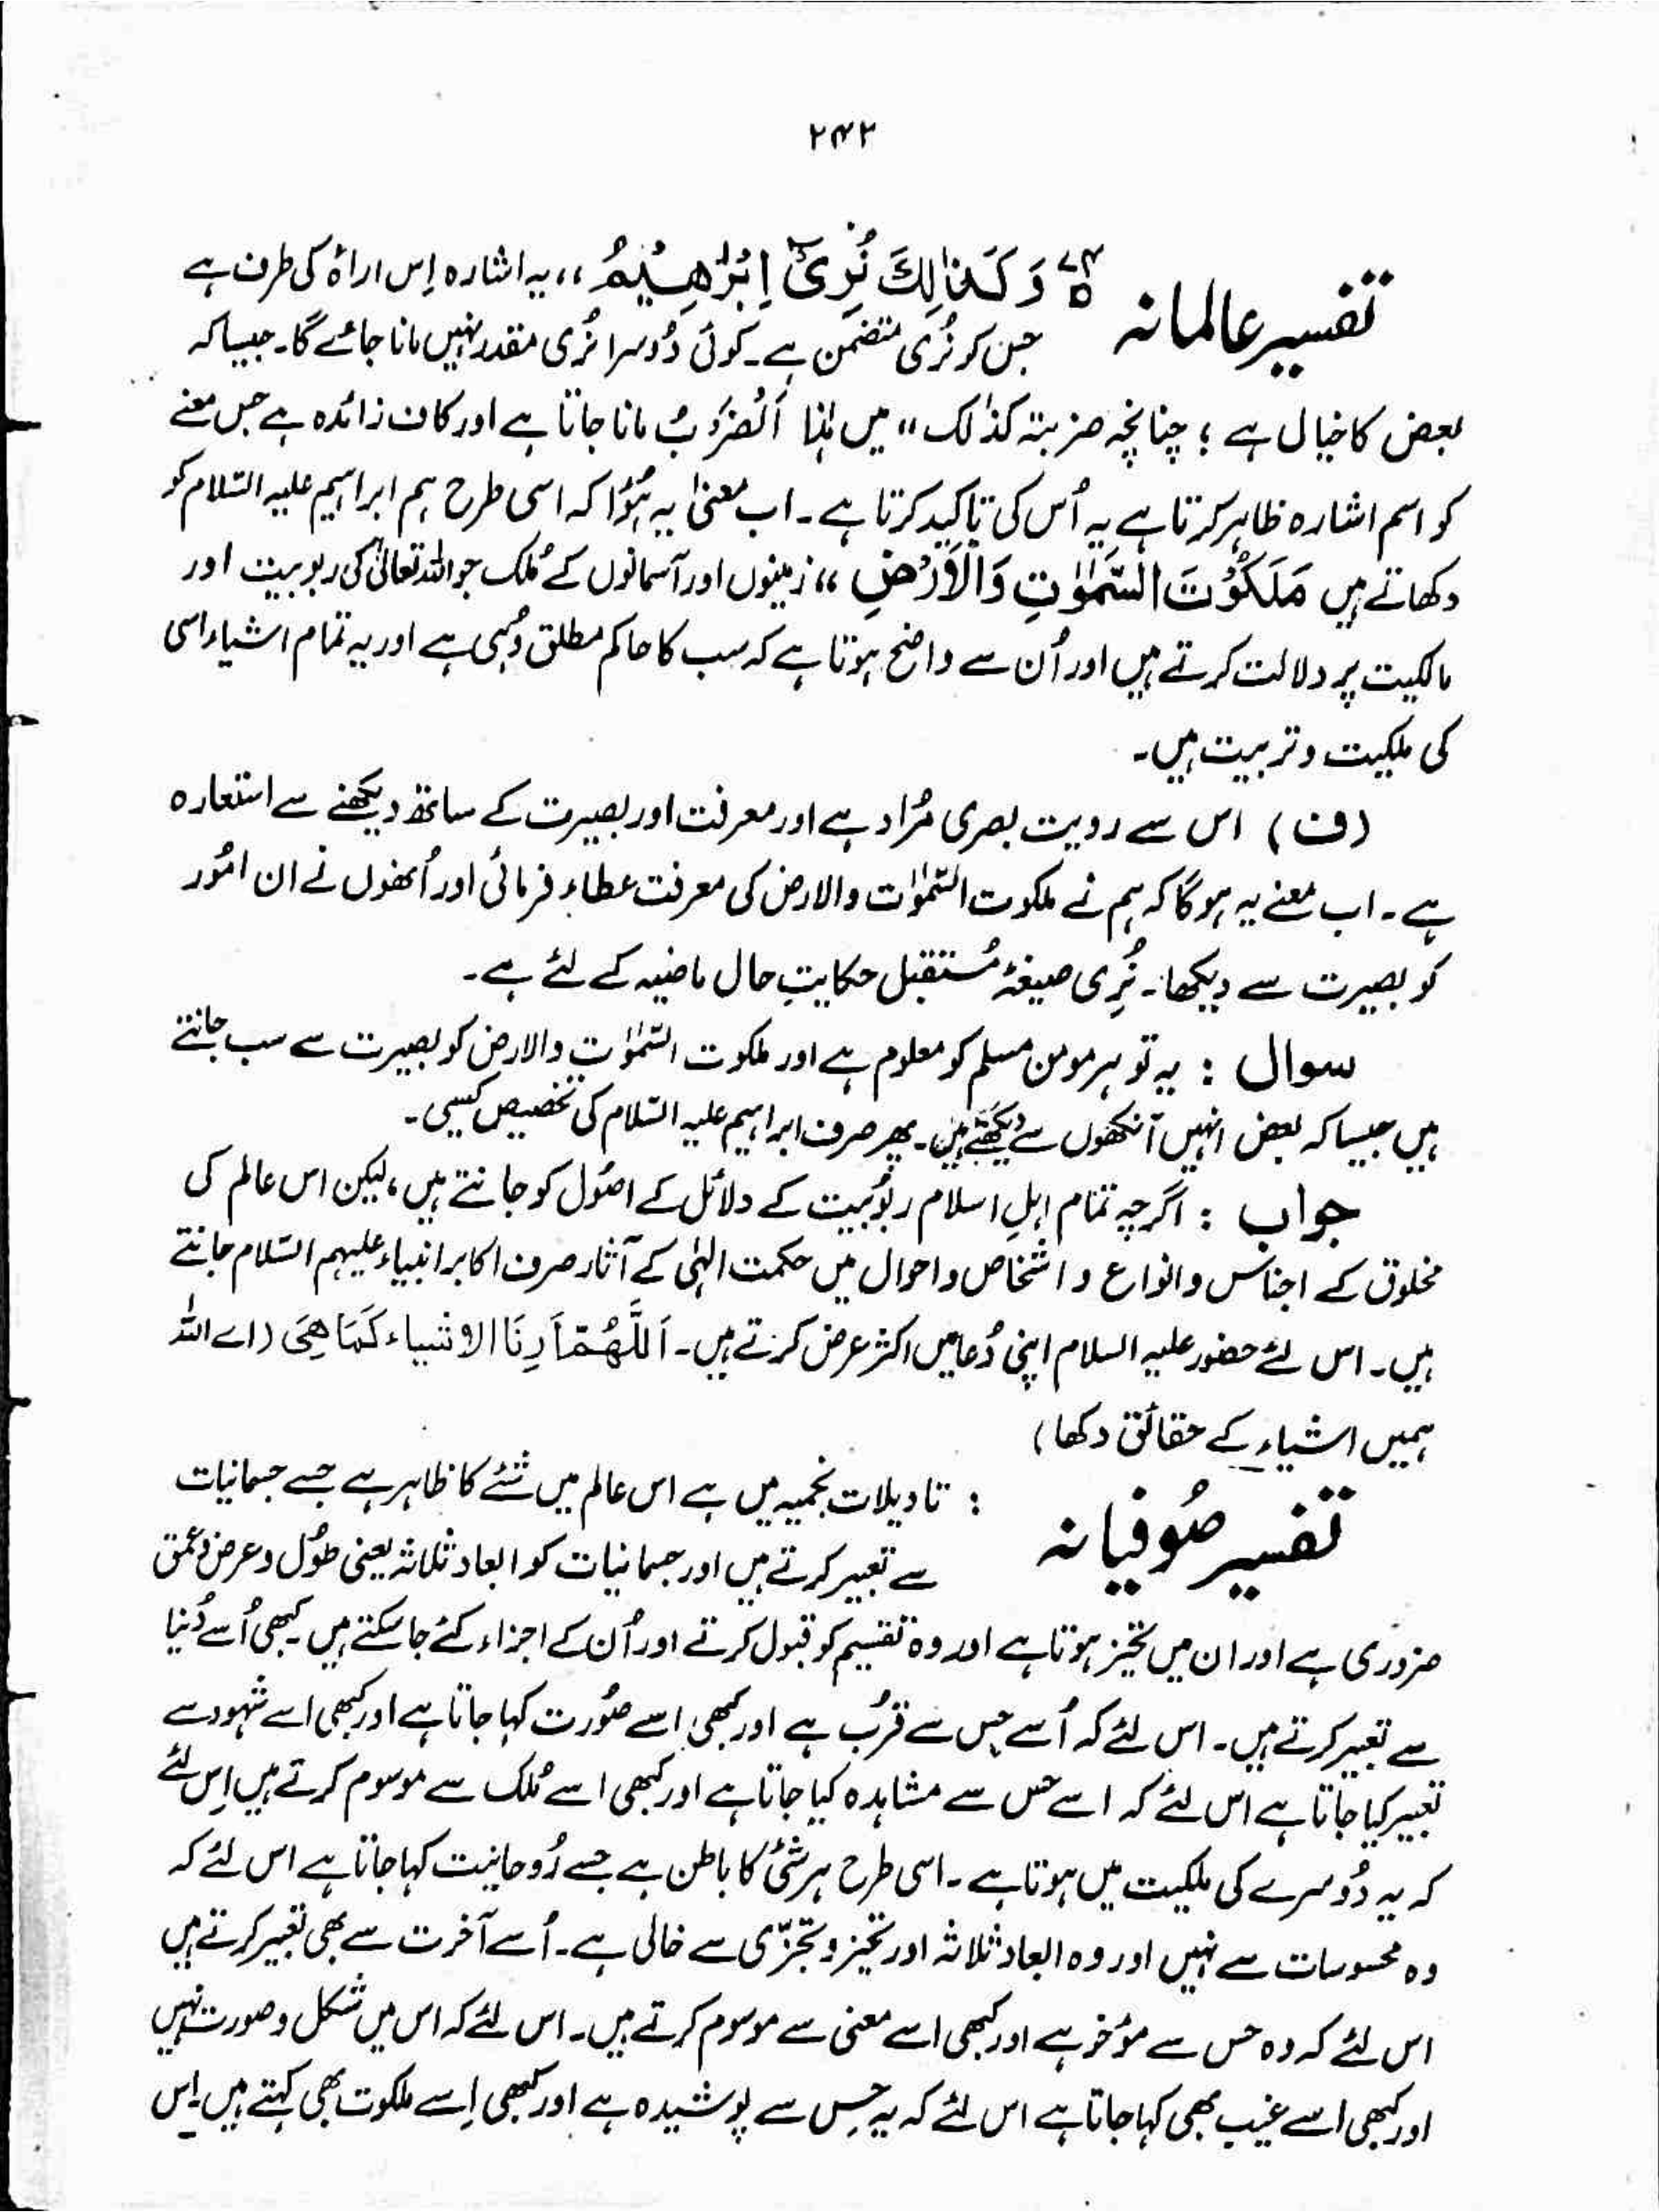 ۲۴۲
تفسیر عالمانہ ۷۵ وَكَذٰلِكَ نُرِیْۤ اِبْرٰهِیْمُ ،، یہ اشارہ اِس اراۃ کی طرف ہے
جن کو نُری متضمن ہے۔ کوئی دُوسرا نُری مقدر نہیں مانا جائے گا۔ جیسا کہ
بعض کا خیال ہے ؛ چنانچہ ضربتہ کذٰلک ،، میں ہٰذا اَلضَّرْبُ مانا جاتا ہے اور کاف زائدہ ہے جس معنے
کو اسم اشارہ ظاہر کرتا ہے یہ اُس کی تاکید کرتا ہے۔ اب معنیٰ یہ ہُوا کہ اسی طرح ہم ابراہیم علیہ السّلام کو
دکھاتے ہیں مَلَكُوْتَ السَّمٰوٰتِ وَالْاَرْضِ ،، زمینوں اور آسمانوں کے مُلک جو اللہ تعالیٰ کی ربوبیت اور
مالکیت پر دلالت کرتے ہیں اور اُن سے واضح ہوتا ہے کہ سب کا حاکم مطلق وُہی ہے اور یہ تمام اشیاء اسی
کی ملکیت و تربیت ہیں۔
(ف) اس سے رویت بصری مُراد ہے اور معرفت اور بصیرت کے ساتھ دیکھنے سے استعارہ
ہے۔ اب معنے یہ ہو گا کہ ہم نے ملکوت السّمٰوٰت والارض کی معرفت عطاء فرمائی اور اُنھوں نے ان امُور
کو بصیرت سے دیکھا۔ نُرِی صیغۂ مُستقبل حکایتِ حال ماضیہ کے لئے ہے۔
سوال : یہ تو ہر مومن مسلم کو معلوم ہے اور ملکوت السّمٰوٰت والارض کو بصیرت سے سب جانتے
ہیں جیسا کہ بعض انہیں آنکھوں سے دیکھتے ہیں۔ پھر صرف ابراہیم علیہ السّلام کی تخصیص کیسی۔
جواب : اگرچہ تمام اہلِ اسلام ربُوبیت کے دلائل کے اصُول کو جانتے ہیں، لیکن اس عالم کی
مخلوق کے اجناس و انواع و اشخاص و احوال میں حکمت الہٰی کے آثار صرف اکابر انبیاء علیہم السّلام جانتے
ہیں۔ اس لئے حضور علیہ السلام اپنی دُعا میں اکثر عرض کرتے ہیں۔ اَللّٰهُمَّ اَرِنَا الاشیاء كَمَا هِیَ (اے اللہ
ہمیں اشیاء کے حقائق دکھا)
تفسیر صُوفیانہ : تاویلات نجمیہ میں ہے اس عالم میں شئے کا ظاہر ہے جسے جسمانیات
سے تعبیر کرتے ہیں اور جسمانیات کو ابعاد ثلاثہ یعنی طوُل و عرض و عمق
ضروری ہے اور ان میں تحیز ہوتا ہے اور وہ تقسیم کو قبول کرتے اور اُن کے اجزاء کئے جا سکتے ہیں۔ کبھی اُسے دُنیا
سے تعبیر کرتے ہیں۔ اس لئے کہ اُسے حِس سے قُرب ہے اور کبھی اسے صُورت کہا جاتا ہے اور کبھی اسے شہود سے
تعبیر کیا جاتا ہے اس لئے کہ اسے حس سے مشاہدہ کیا جاتا ہے اور کبھی اسے مُلک سے موسوم کرتے ہیں اِس لئے
کہ یہ دُوسرے کی ملکیت میں ہوتا ہے۔ اسی طرح ہر شئ کا باطن ہے جسے رُوحانیت کہا جاتا ہے اس لئے کہ
وہ محسوسات سے نہیں اور وہ ابعاد ثلاثہ اور تحیز و تجزّی سے خالی ہے۔ اُسے آخرت سے بھی تعبیر کرتے ہیں
اس لئے کہ وہ حس سے مؤخر ہے اور کبھی اسے معنی سے موسوم کرتے ہیں۔ اس لئے کہ اس میں شکل و صورت نہیں
اور کبھی اسے غیب بھی کہا جاتا ہے اس لئے کہ یہ حِس سے پوشیدہ ہے اور کبھی اِسے ملکوت بھی کہتے ہیں۔ اس